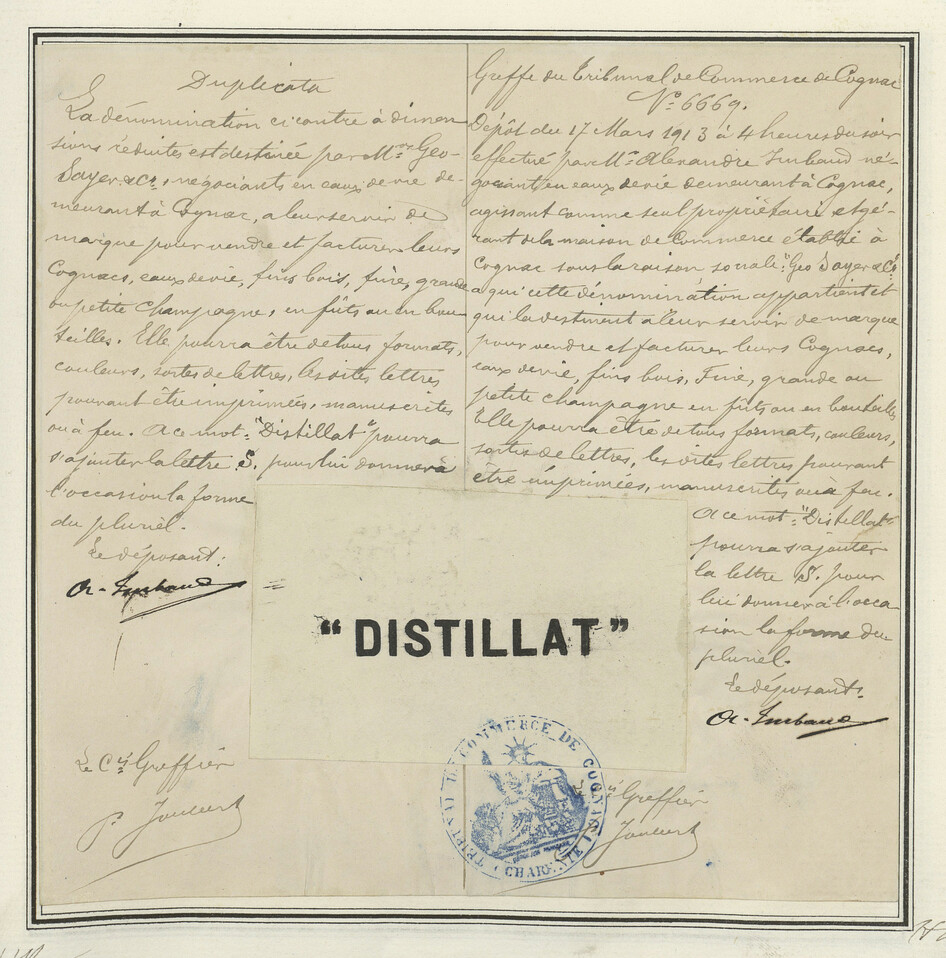 Duplicata
La dénomination ci contre à dimen
sions réduites est destinée par Mrs Geo-
Sayer & Co, négociants en eaux de vie de-
meurant à Cognac, a leur servir de
marque pour vendre et facturer leurs
Cognacs, eaux de vie, fins bois, fine, grande
ou petite champagne, en fûts ou en bou
teilles. Elle pourra être de tous formats,
couleurs, sortes de lettres, les dites lettres
pouvant être imprimées, manuscrites
ou à feu. A ce mot "Distillat" pourra
s'ajouter la lettre S. pour lui donner à
l'occasion la forme
du pluriel.
Le déposant:
A. Imbaud
Le Cis Greffier
Greffe du Tribunal de Commerce de Cognac
No 6669.
Dépôt du 17 Mars 1913 à 4 heures du soir
effectué par Mr Alexandre Imbaud né-
gociant en eaux de vie demeurant à Cognac,
agissant comme seul propriétaire et gé-
rant de la maison de Commerce établie à
Cognac sous la raison sociale "Geo Sayer & Co"
a qui cette dénomination appartient et
qui la destinent a leur servir de marque
pour vendre et facturer leurs Cognacs,
eaux de vie, fins bois, Fine, grande ou
petite champagne en fûts ou en bouteilles
Elle pourra être de tous formats, couleurs,
sortes de lettres, les dites lettres pouvant
être imprimées, manuscrites ou à feu.
A ce mot "Distillat"
pourra s'ajouter
la lettre S. pour
lui donner à l'occa
sion la forme du
pluriel.
Le déposant.
A. Imbaud
Greffier
"DISTILLAT"
TRIBUNAL DE COMMERCE DE COGNAC
CHARENTE